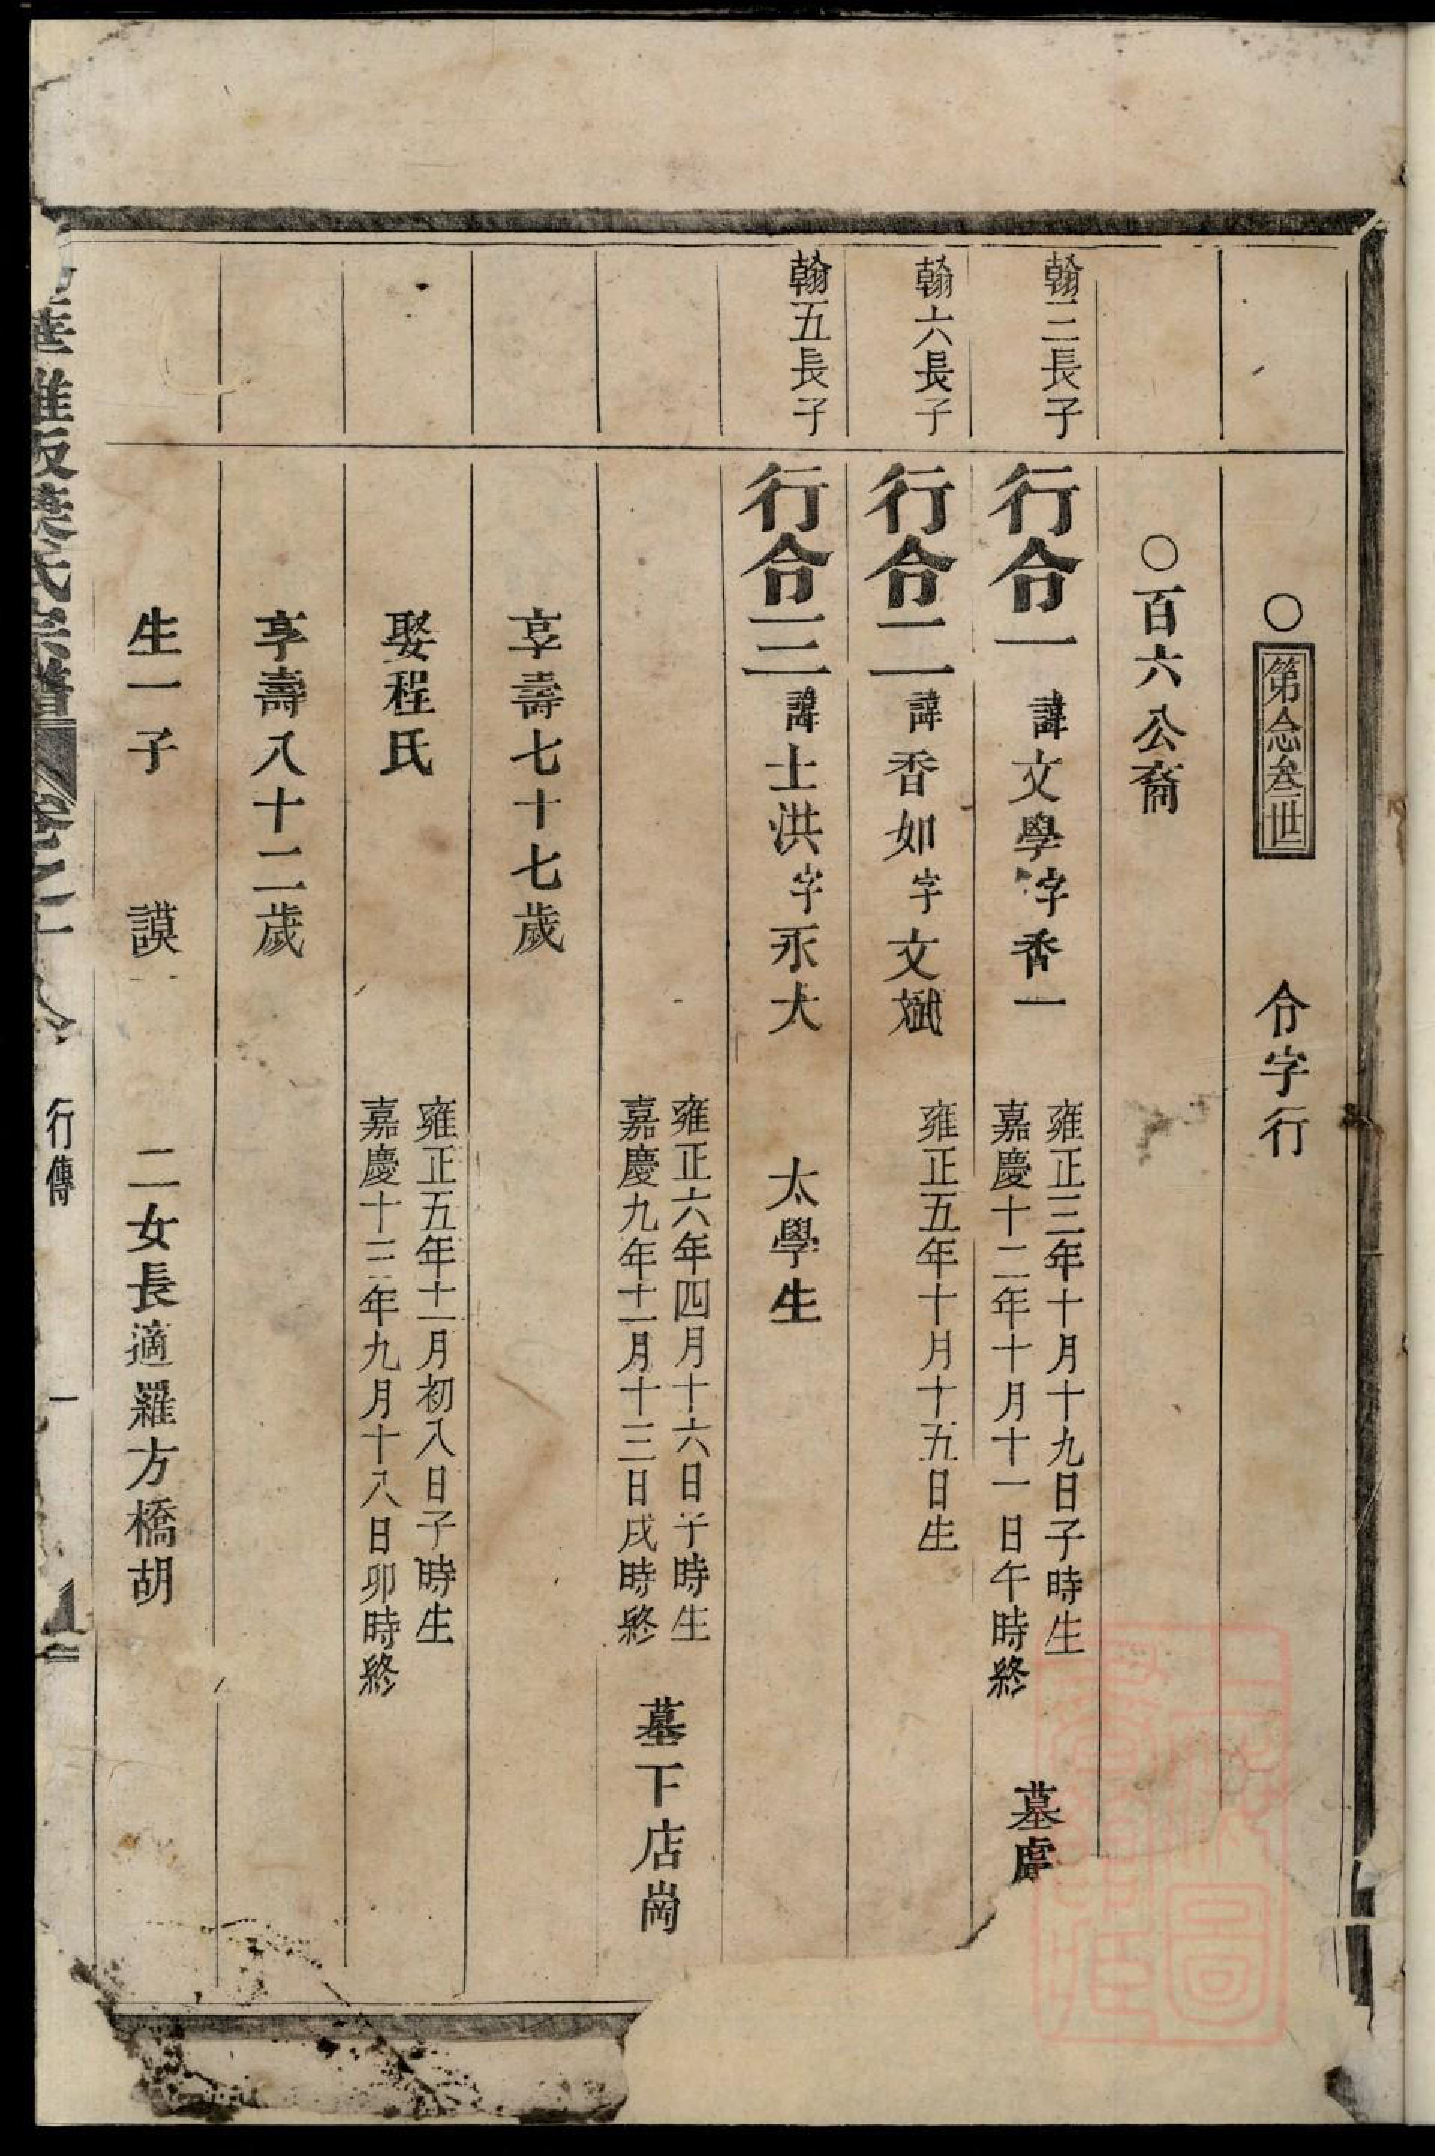 ○第念叁世　令字行
○百六公裔
翰三長子
行令一　諱文學字香一
雍正三年十月十九日子時生
嘉慶十二年十月十一日午時終
墓處
翰六長子
行令二　諱香如字文斌
雍正五年十月十五日生
翰五長子
行令三　諱士洪字永大　太學生
雍正六年四月十六日子時生
嘉慶九年十一月十三日戌時終
墓下店崗
享壽七十七歲
娶程氏
雍正五年十一月初八日子時生
嘉慶十三年九月十八日卯時終
享壽八十二歲
生一子　謨一　二女長適羅方橋胡
雅畈葉氏宗譜
卷之十八
行傳
一